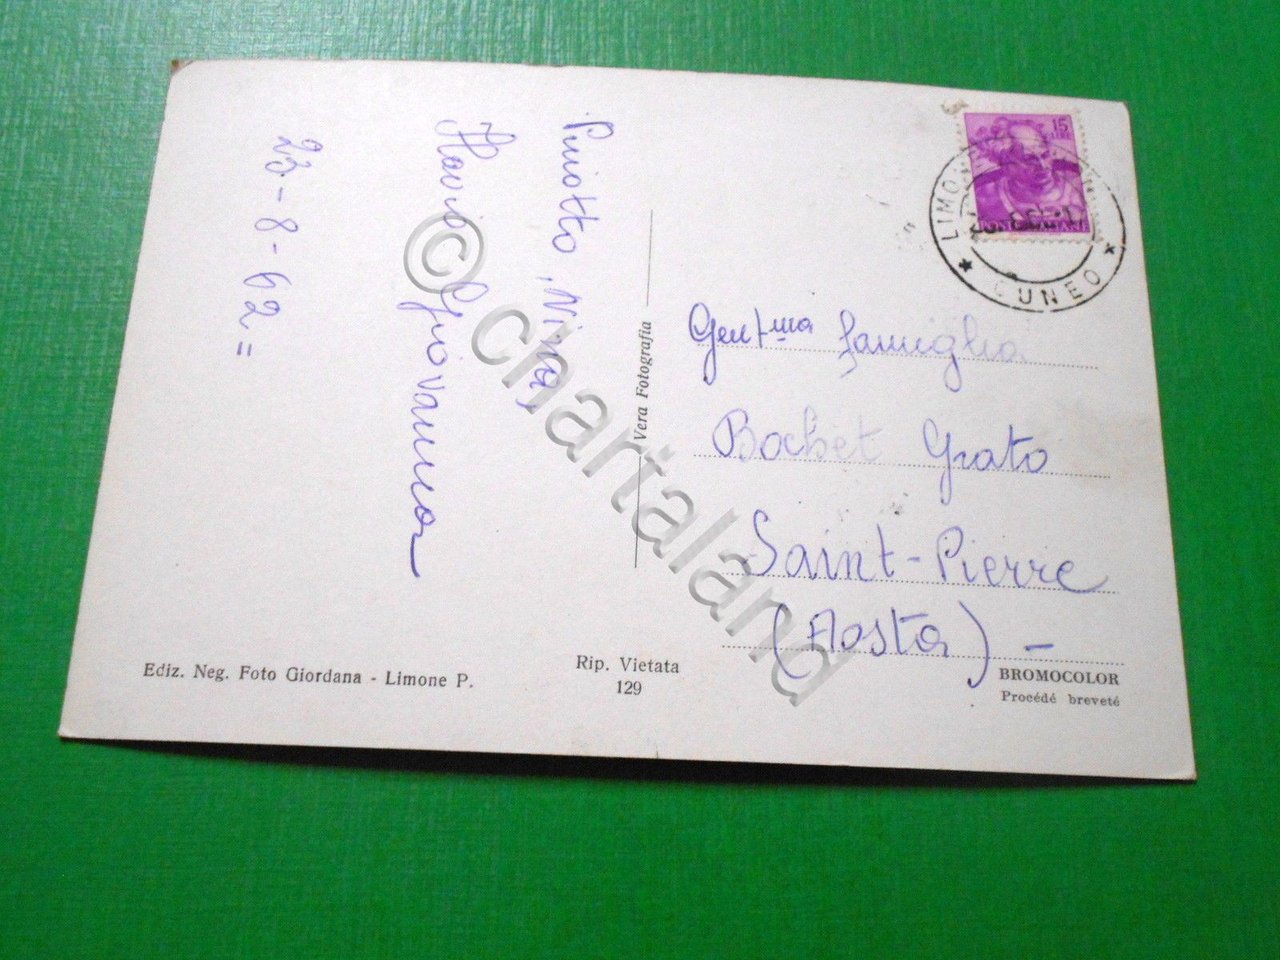 Piniotto, Nina,
Flavio Giovanna
23-8-62=
Vera Fotografia
15
LIRE
LIMON
CUNEO
Gent.ma famiglia
Bochet Grato
Saint-Pierre
(Aosta) -
Ediz. Neg. Foto Giordana - Limone P.
Rip. Vietata
129
BROMOCOLOR
Procédé breveté
© chartaland